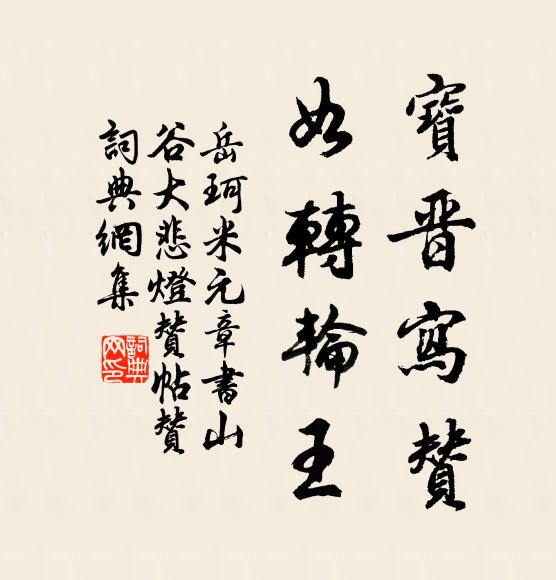 寶晋寫贊
如轉輪王
岳珂米元章書山
谷大悲燈贊帖贊
詞典網集
詞典網印